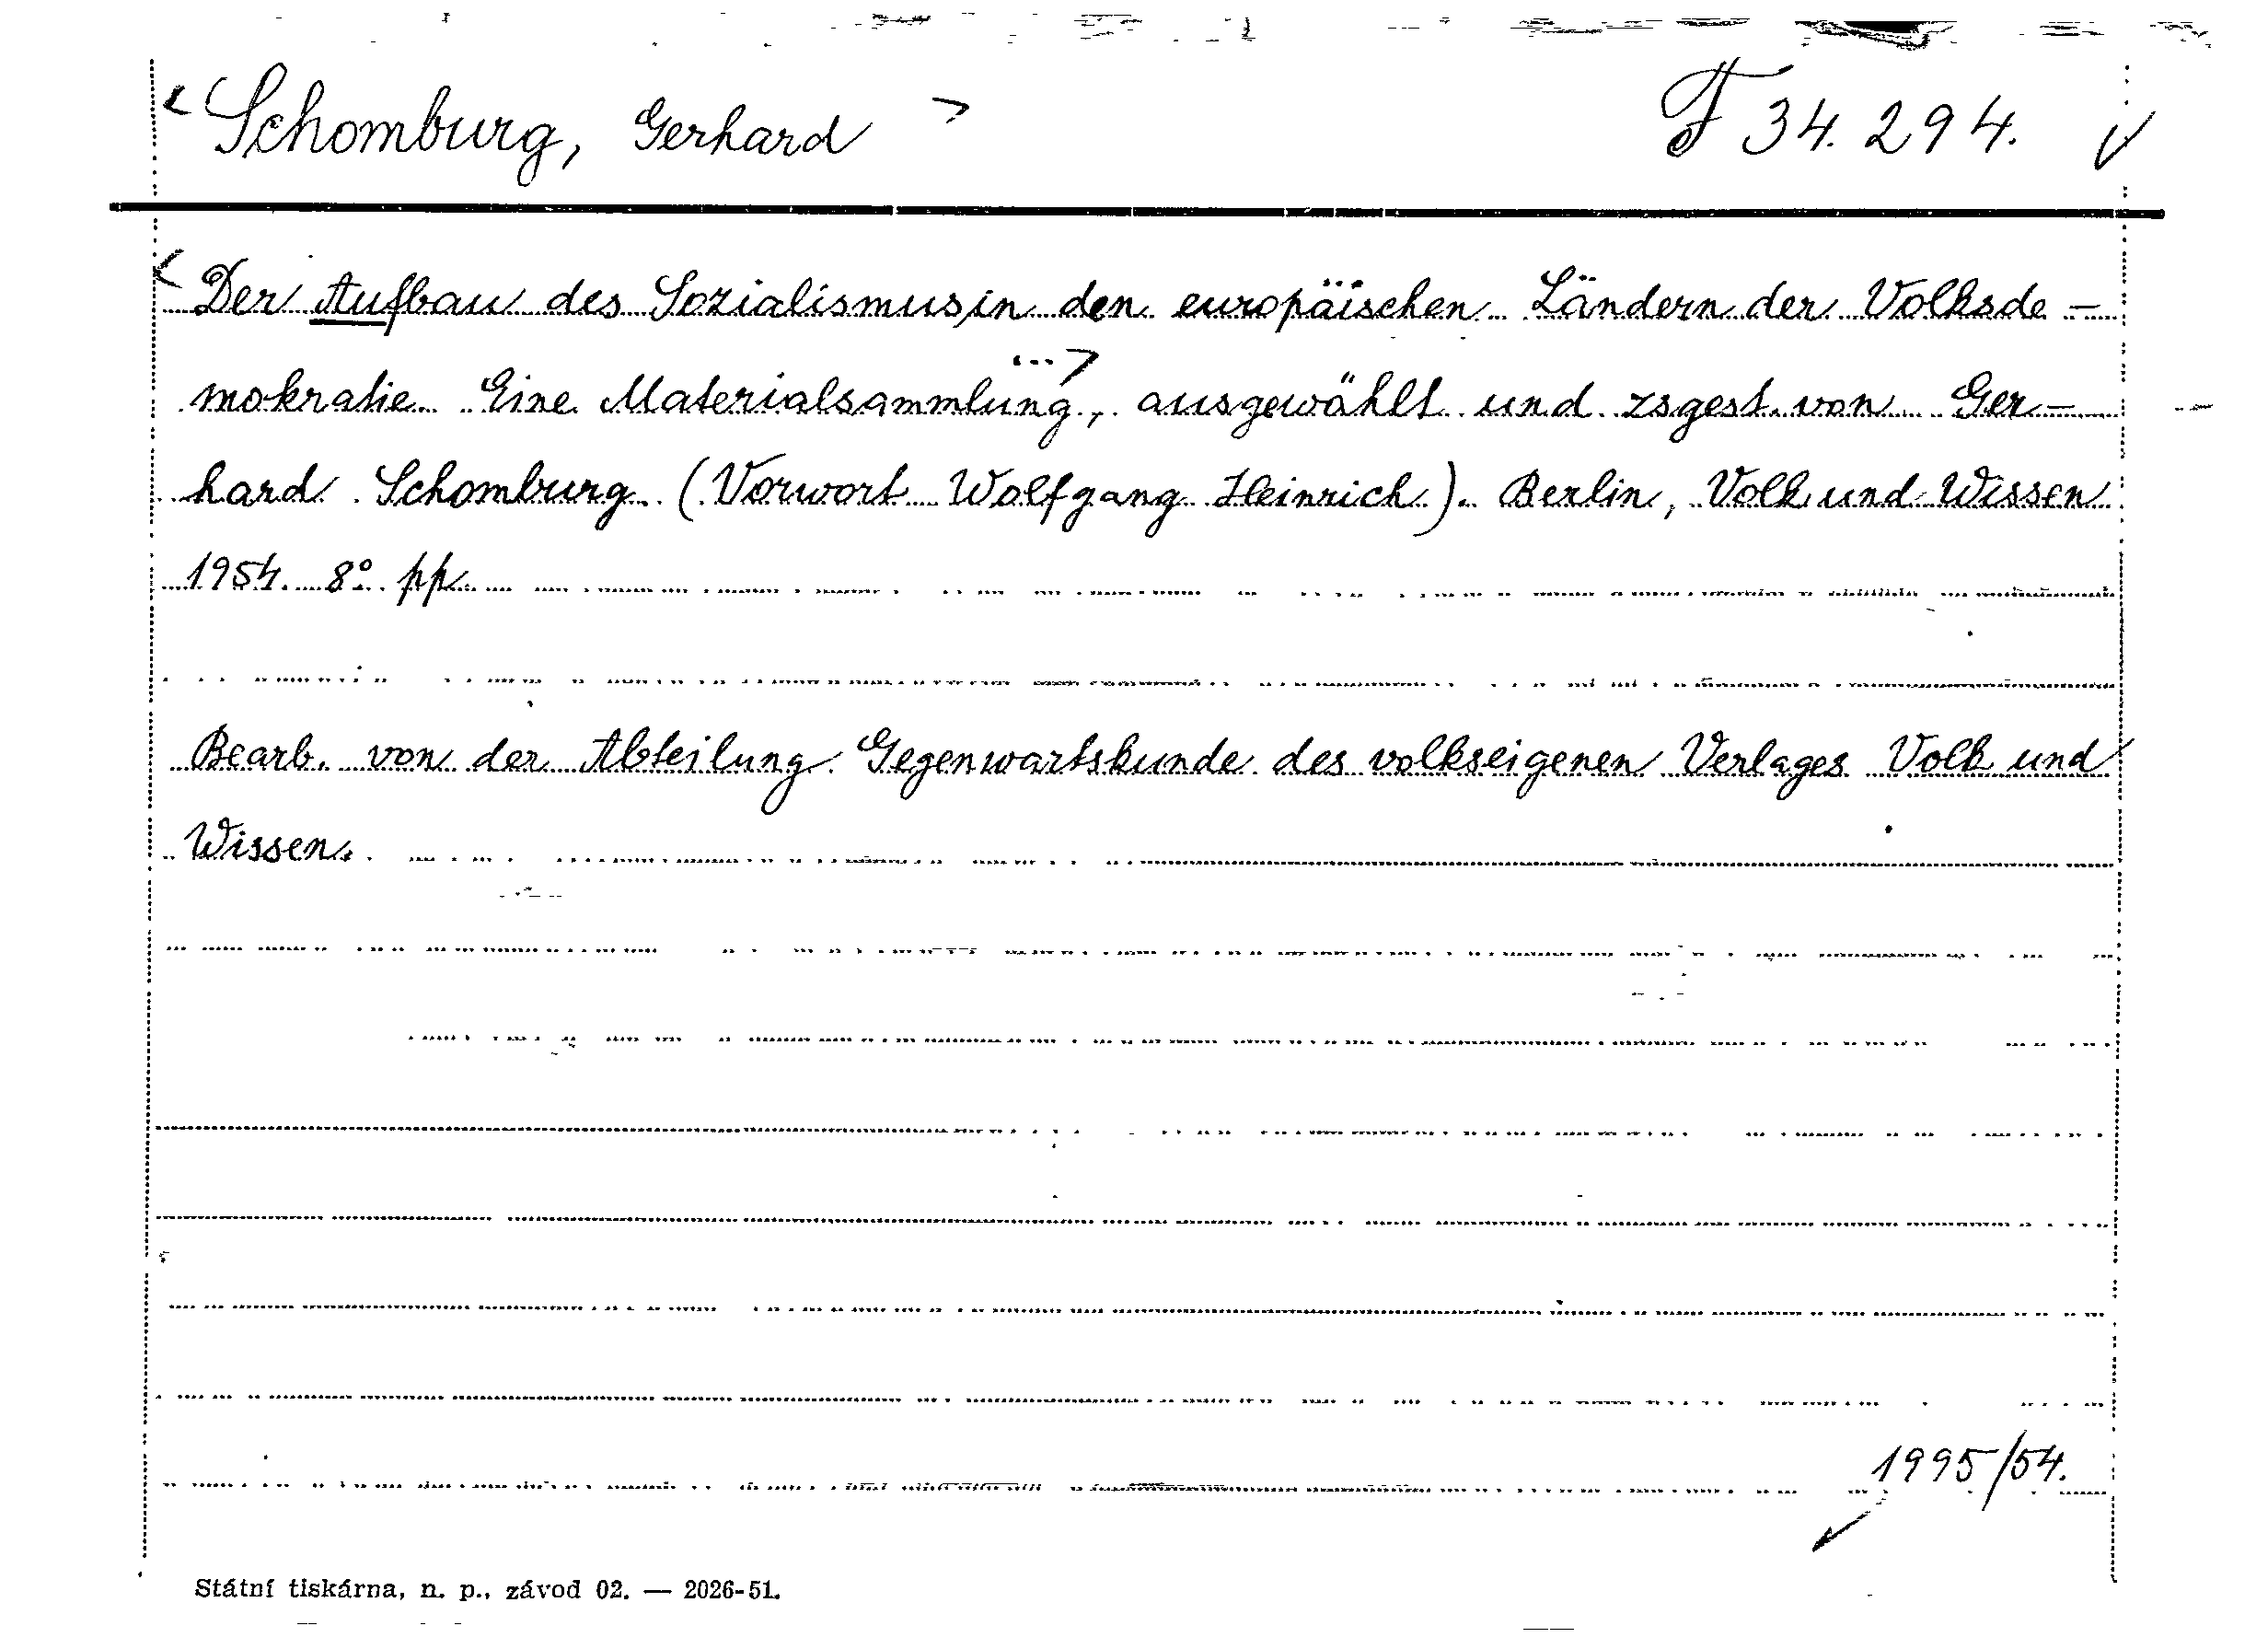 < Schomburg, Gerhard > F 34.294. ✓
< Der Aufbau des Sozialismus in den europäischen Ländern der Volksde-
mokratie. Eine Materialsammlung, ...> ausgewählt und zsgest. von Ger-
hard Schomburg. (Vorwort Wolfgang Heinrich). Berlin, Volk und Wissen
1954. 8° pp.
Bearb. von der Abteilung Gegenwartskunde des volkseigenen Verlages Volk und
Wissen.
1995/54.
Státní tiskárna, n. p., závod 02. — 2026-51.